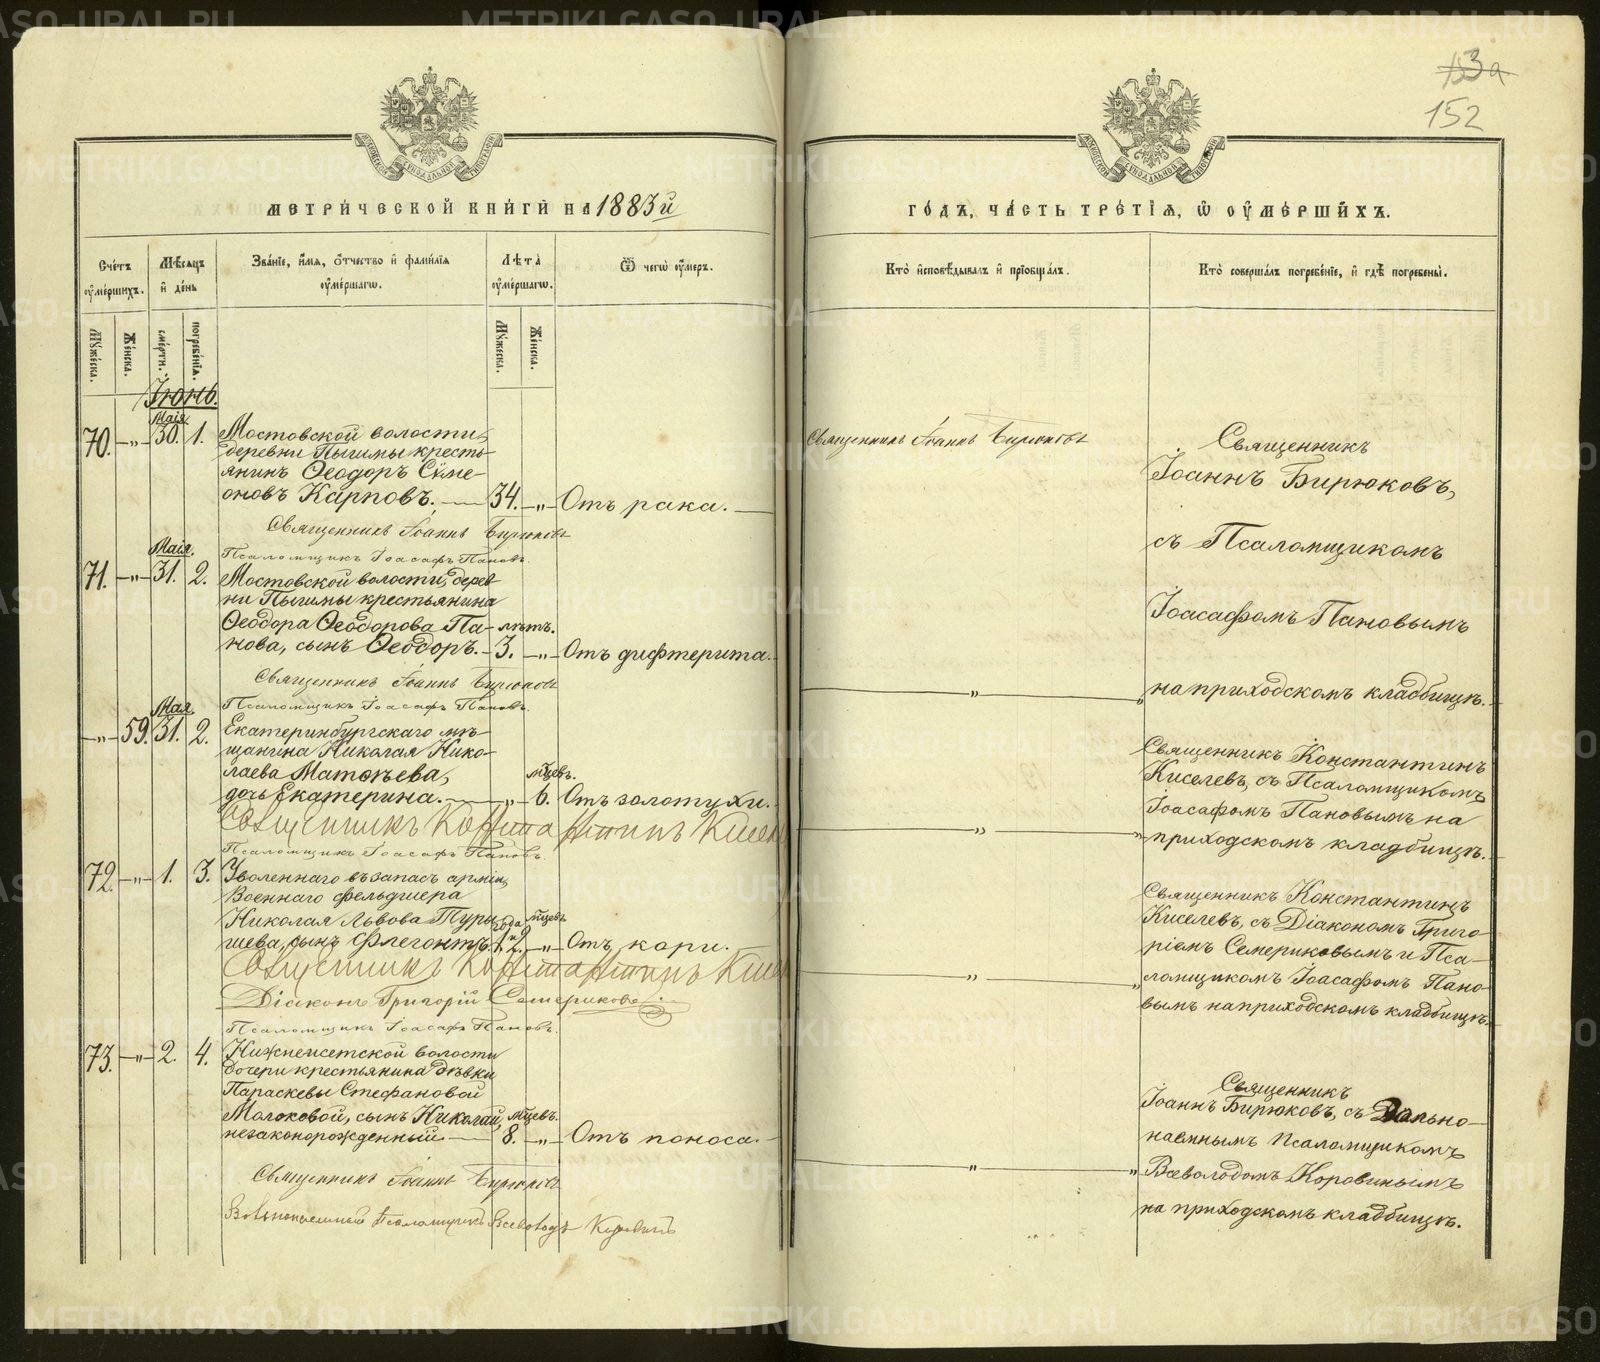 METRIKI.GASO-URAL.RU
МОСКОВСКОЙ СѴНОДАЛЬНОЙ ТИПОГРАФІИ
МЕТРИ́ЧЕСКОЙ КНИ́ГИ НА 1883й
Сче́тъ ᲂу҆ме́ршихъ.
Мѣ́сяцъ и҆ де́нь
Зва́нїе, и҆́мѧ, ѻ҆́тчество и҆ фами́лїѧ ᲂу҆ме́ршагѡ.
Лѣ́та ᲂу҆ме́ршагѡ.
Ѿ чегѡ̀ ᲂу҆́меръ.
Мꙋ́жеска.
Же́нска.
сме́рти.
погребе́нїѧ.
Мꙋ́жеска.
Же́нска.
Іюнь.
Маія
70. —„— 30. 1. Мостовской волости,
деревни Пышмы кресть-
янинъ Ѳеодоръ Сѵме-
оновъ Карповъ. — 34. —„— Отъ рака. —
Священникъ Іоаннъ Бирюковъ
Псаломщикъ Іоасафъ Пановъ.
Маія.
71. —„— 31. 2. Мостовской волости, дерев-
ни Пышмы крестьянина
Ѳеодора Ѳеодорова Па- лѣтъ.
нова, сынъ Ѳеодоръ. — 3. —„— Отъ дифтерита.
Священникъ Іоаннъ Бирюковъ
Псаломщикъ Іоасафъ Пановъ.
Мая
—„— 59. 31. 2. Екатеринбургскаго мѣ-
щанина Николая Нико-
лаева Матѳѣева, мцевъ.
дочь Екатерина. — „ — 6. Отъ золотухи.
Священникъ Константинъ Киселевъ
Псаломщикъ Іоасафъ Пановъ.
72. —„— 1. 3. Уволеннаго въ запасъ арміи,
Военнаго фельдшера
Николая Львова Туры- года мцевъ
шева, сынъ Флегонтъ. 1. и 2. —„— Отъ кори.
Священникъ Константинъ Кисел
Діаконъ Григорій Семериковъ.
Псаломщикъ Іоасафъ Пановъ.
73. —„— 2. 4. Нижнеисетской волости
дочери крестьянина дѣвки
Параскевы Стефановой
Молоковой, сынъ Николай, мцевъ.
незаконорожденный. — 8. —„— Отъ поноса. —
Священникъ Іоаннъ Бирюковъ
Вольнонаемный Псаломщикъ Всеволодъ Коровинъ
153а
152
МОСКОВСКОЙ СѴНОДАЛЬНОЙ ТИПОГРАФІИ
ГО́ДЪ, ЧА́СТЬ ТРЕ́ТЇѦ, Ѡ҆ ОУ҆МЕ́РШИХЪ.
Кто̀ и҆сповѣ́дывалъ и҆ прїѡбща́лъ.
Кто̀ соверша́лъ погребе́нїе, и҆ гдѣ̀ погребены̀.
Священникъ Іоаннъ Бирюковъ
Священникъ
Іоаннъ Бирюковъ,
съ Псаломщикомъ
Іоасафомъ Пановымъ
— „ — „ на приходскомъ кладбищѣ.
Священникъ Константинъ
Киселевъ, съ Псаломщикомъ
Іоасафомъ Пановымъ на
— „ — „ приходскомъ кладбищѣ.
Священникъ Константинъ
Киселевъ, съ Діакономъ Григо-
ріемъ Семериковымъ и Пса-
— „ — „ ломщикомъ Іоасафомъ Пано-
вымъ на приходскомъ кладбищѣ.
Священникъ
Іоаннъ Бирюковъ, съ Вольно-
наемнымъ псаломщикомъ
— „ — „ Всеволодомъ Коровинымъ
на приходскомъ кладбищѣ.